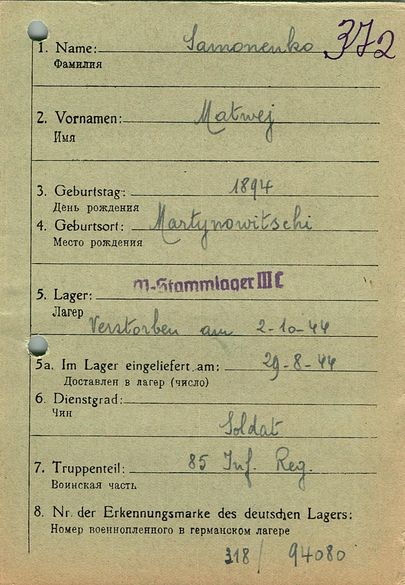 372
1. Name: Samonenko
Фамилия
2. Vornamen: Matwej
Имя
3. Geburtstag: 1894
День рождения
4. Geburtsort: Martynowitschi
Место рождения
M-Stammlager III C
5. Lager:
Лагер
Verstorben am 2-10-44
5a. Im Lager eingeliefert am: 29-8-44
Доставлен в лагер (число)
6. Dienstgrad:
Чин
Soldat
7. Truppenteil: 85 Inf. Reg.
Воинская часть
8. Nr. der Erkennungsmarke des deutschen Lagers:
Номер военнопленного в германском лагере
318 / 94080